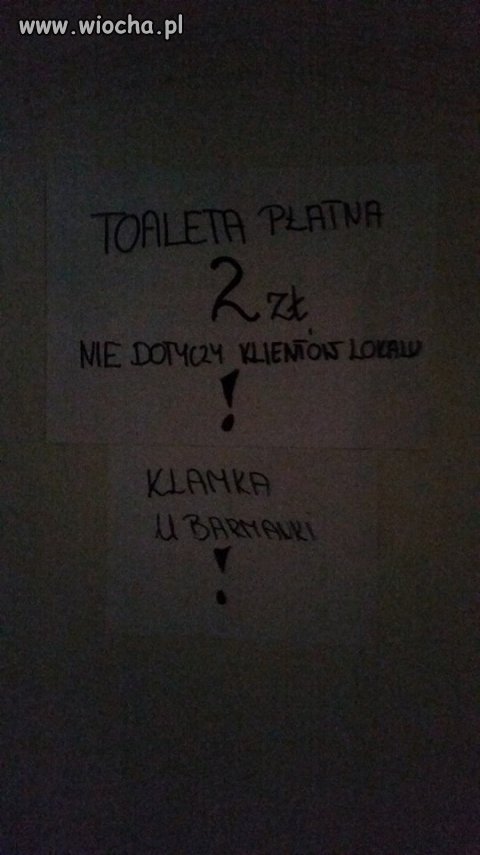 www.wiocha.pl
TOALETA PŁATNA
2 ZŁ.
NIE DOTYCZY KLIENTÓW LOKALU
!
KLAMKA
U BARMANKI
!